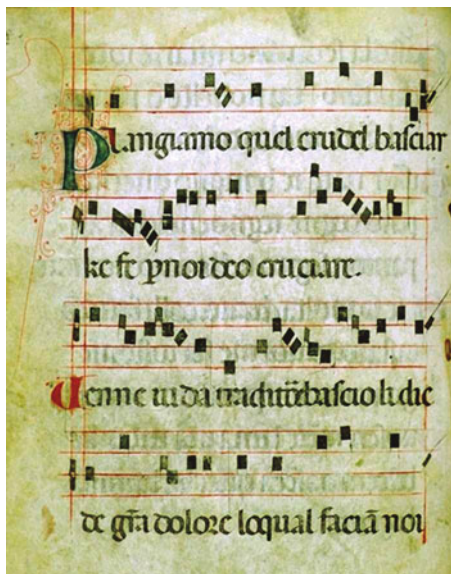 Plangiamo quel crudel basciar
ke fe ꝑ noi deo cruciare.
Venne iuda traditõe bascio li dic
de gr̃a dolore loqual faciã noi